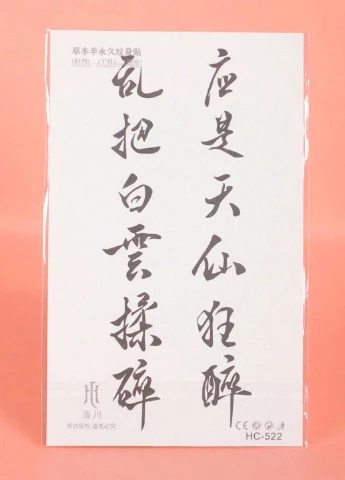 草本半永久纹身贴
应是天仙狂醉
乱把白雲揉碎
海川
CE
HC-522